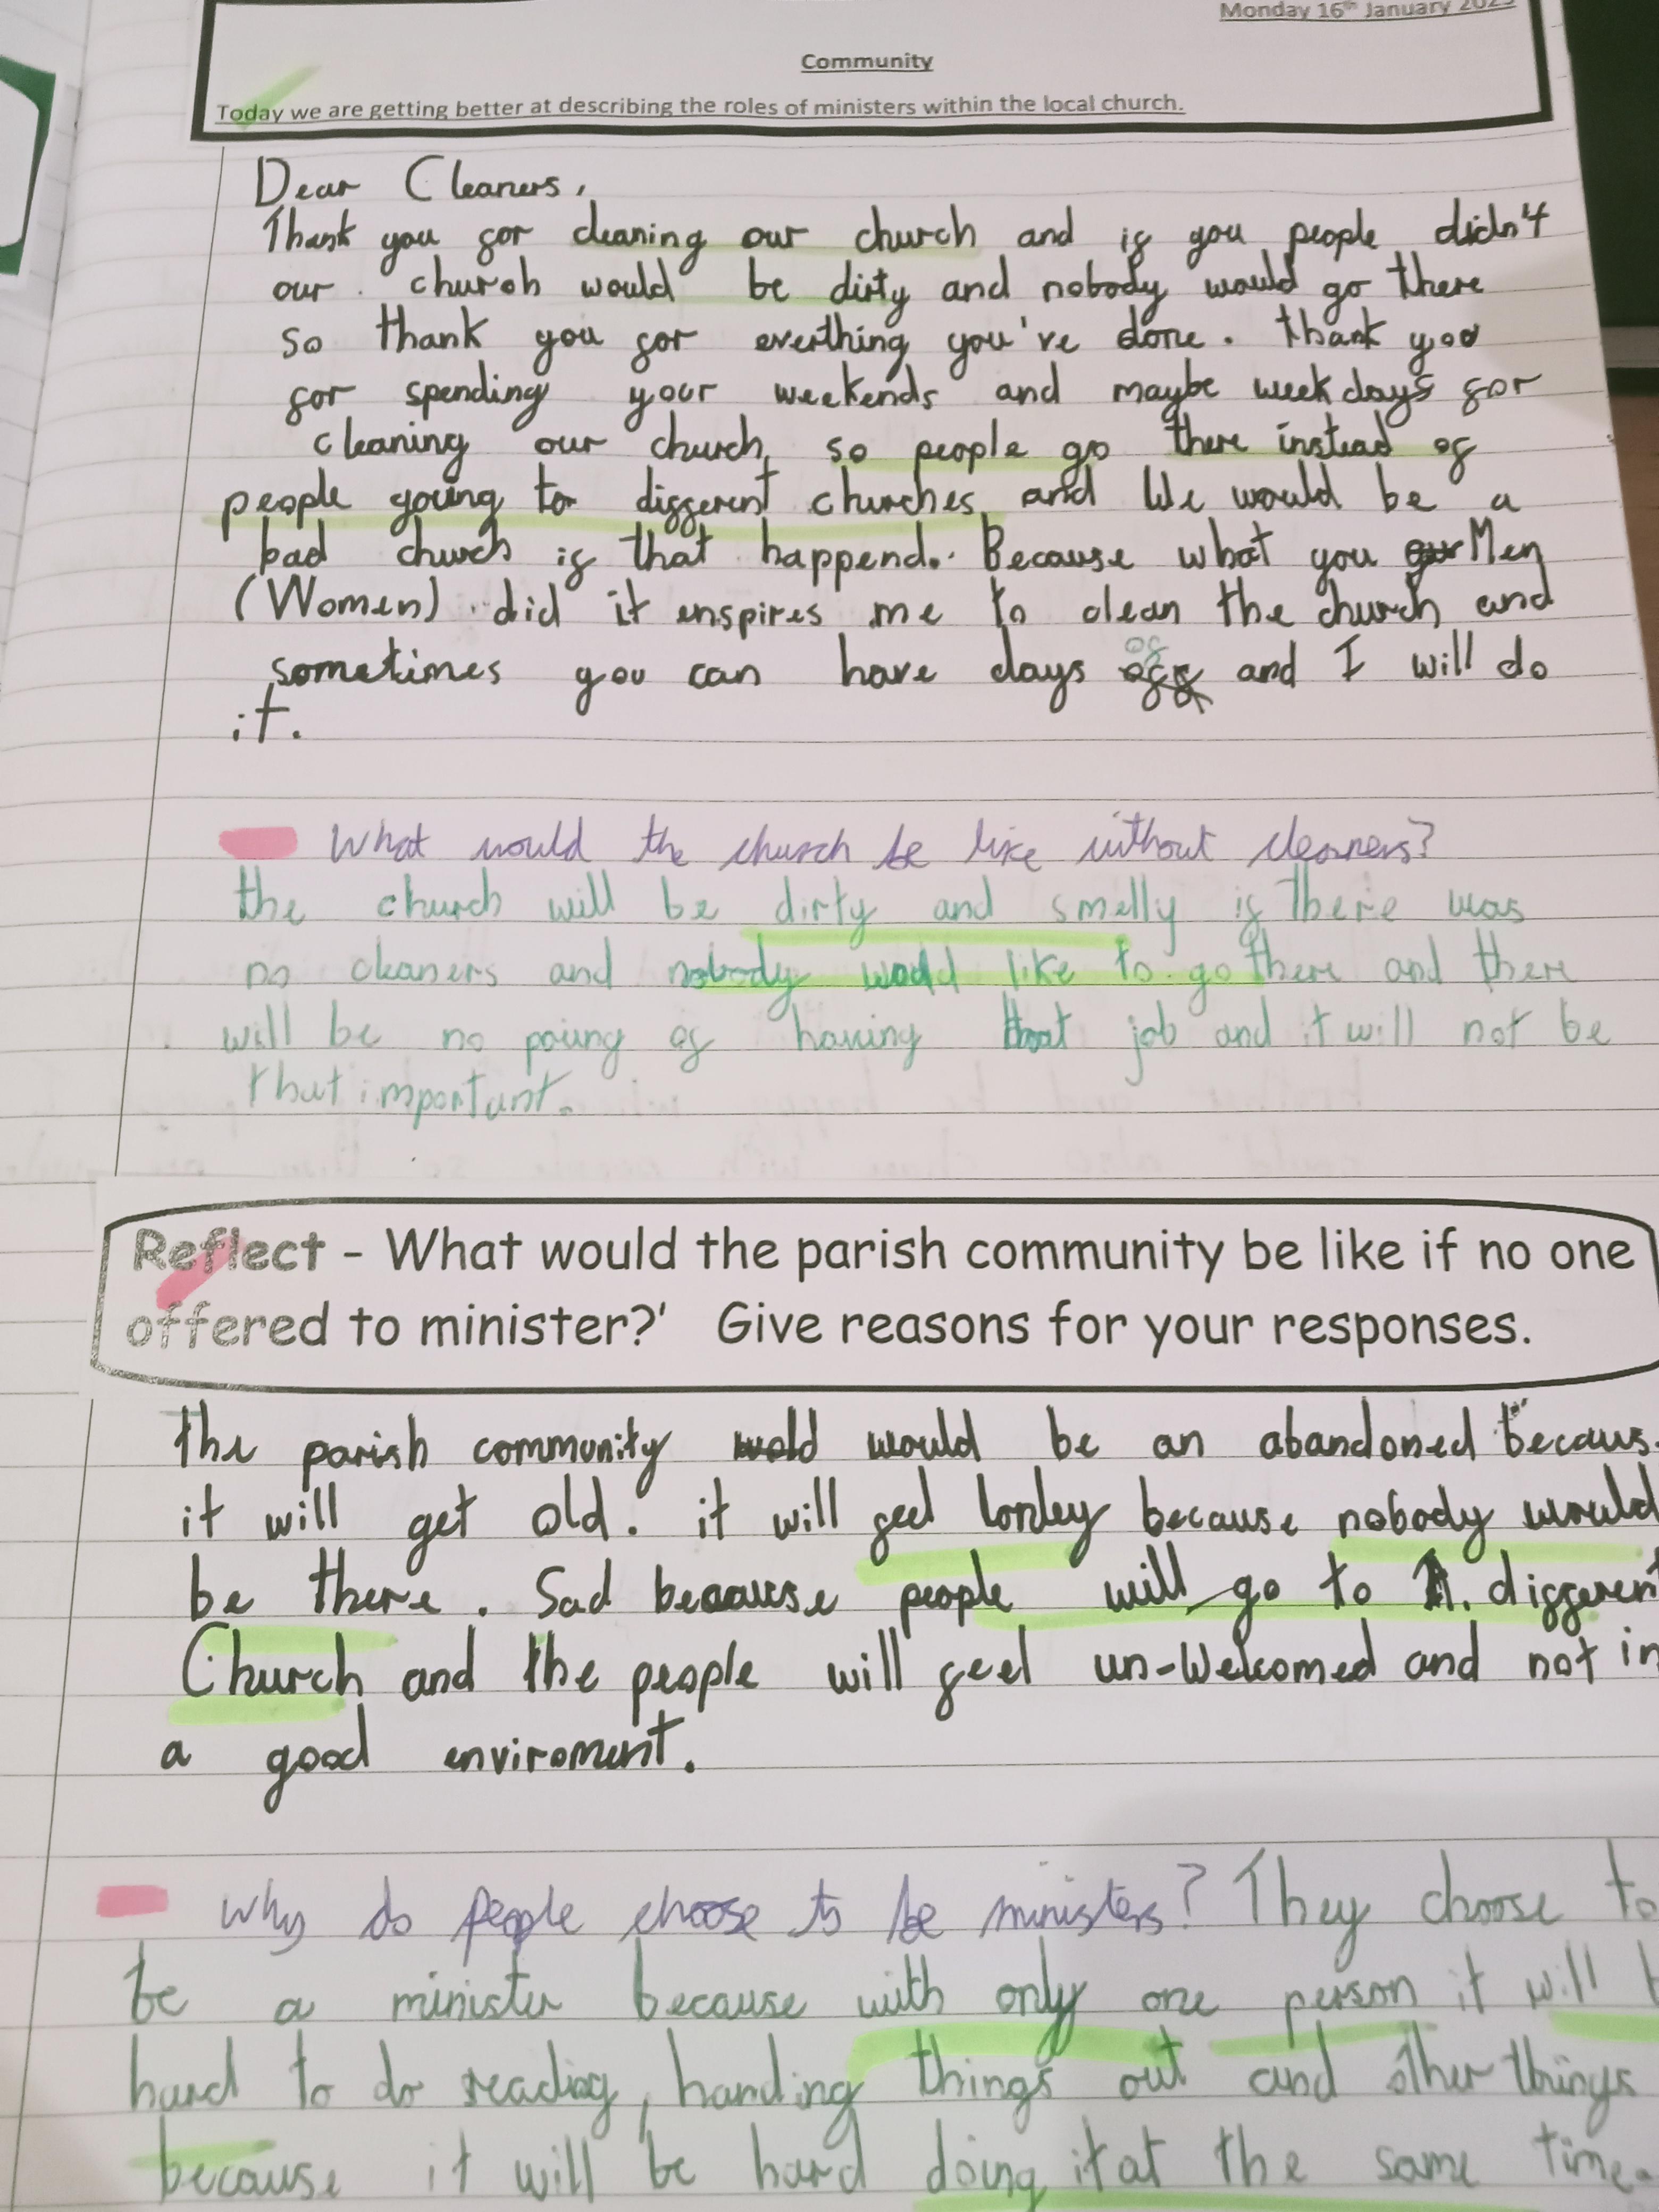 Monday 16th January 2023
Community
Today we are getting better at describing the roles of ministers within the local church.
Dear Cleaners,
Thank you for cleaning our church and if you people didn't
our church would be dirty and nobody would go there
so thank you for everthing you've done. thank you
for spending your weekends and maybe weekdays for
cleaning our church, so people go there instead of
people going to different churches and We would be a
bad church if that happend. Because what you Men
(Women) did it enspires me to clean the church and
sometimes you can have days of and I will do
it.
What would the church be like without cleaners?
the church will be dirty and smelly if there was
no cleaners and nobody would like to go there and there
will be no poing of having that job and it will not be
that important.
Reflect - What would the parish community be like if no one
offered to minister?' Give reasons for your responses.
The parish community would be an abandoned becaus
it will get old. it will feel lonley because nobody would
be there. Sad because people will go to A. different
Church and the people will feel un-Welcomed and not in
a good enviroment.
Why do people choose to be ministers? They choose to
be a minister because with only one person it will b
hard to do reading, handing things out and other things
because it will be hard doing it at the same time.